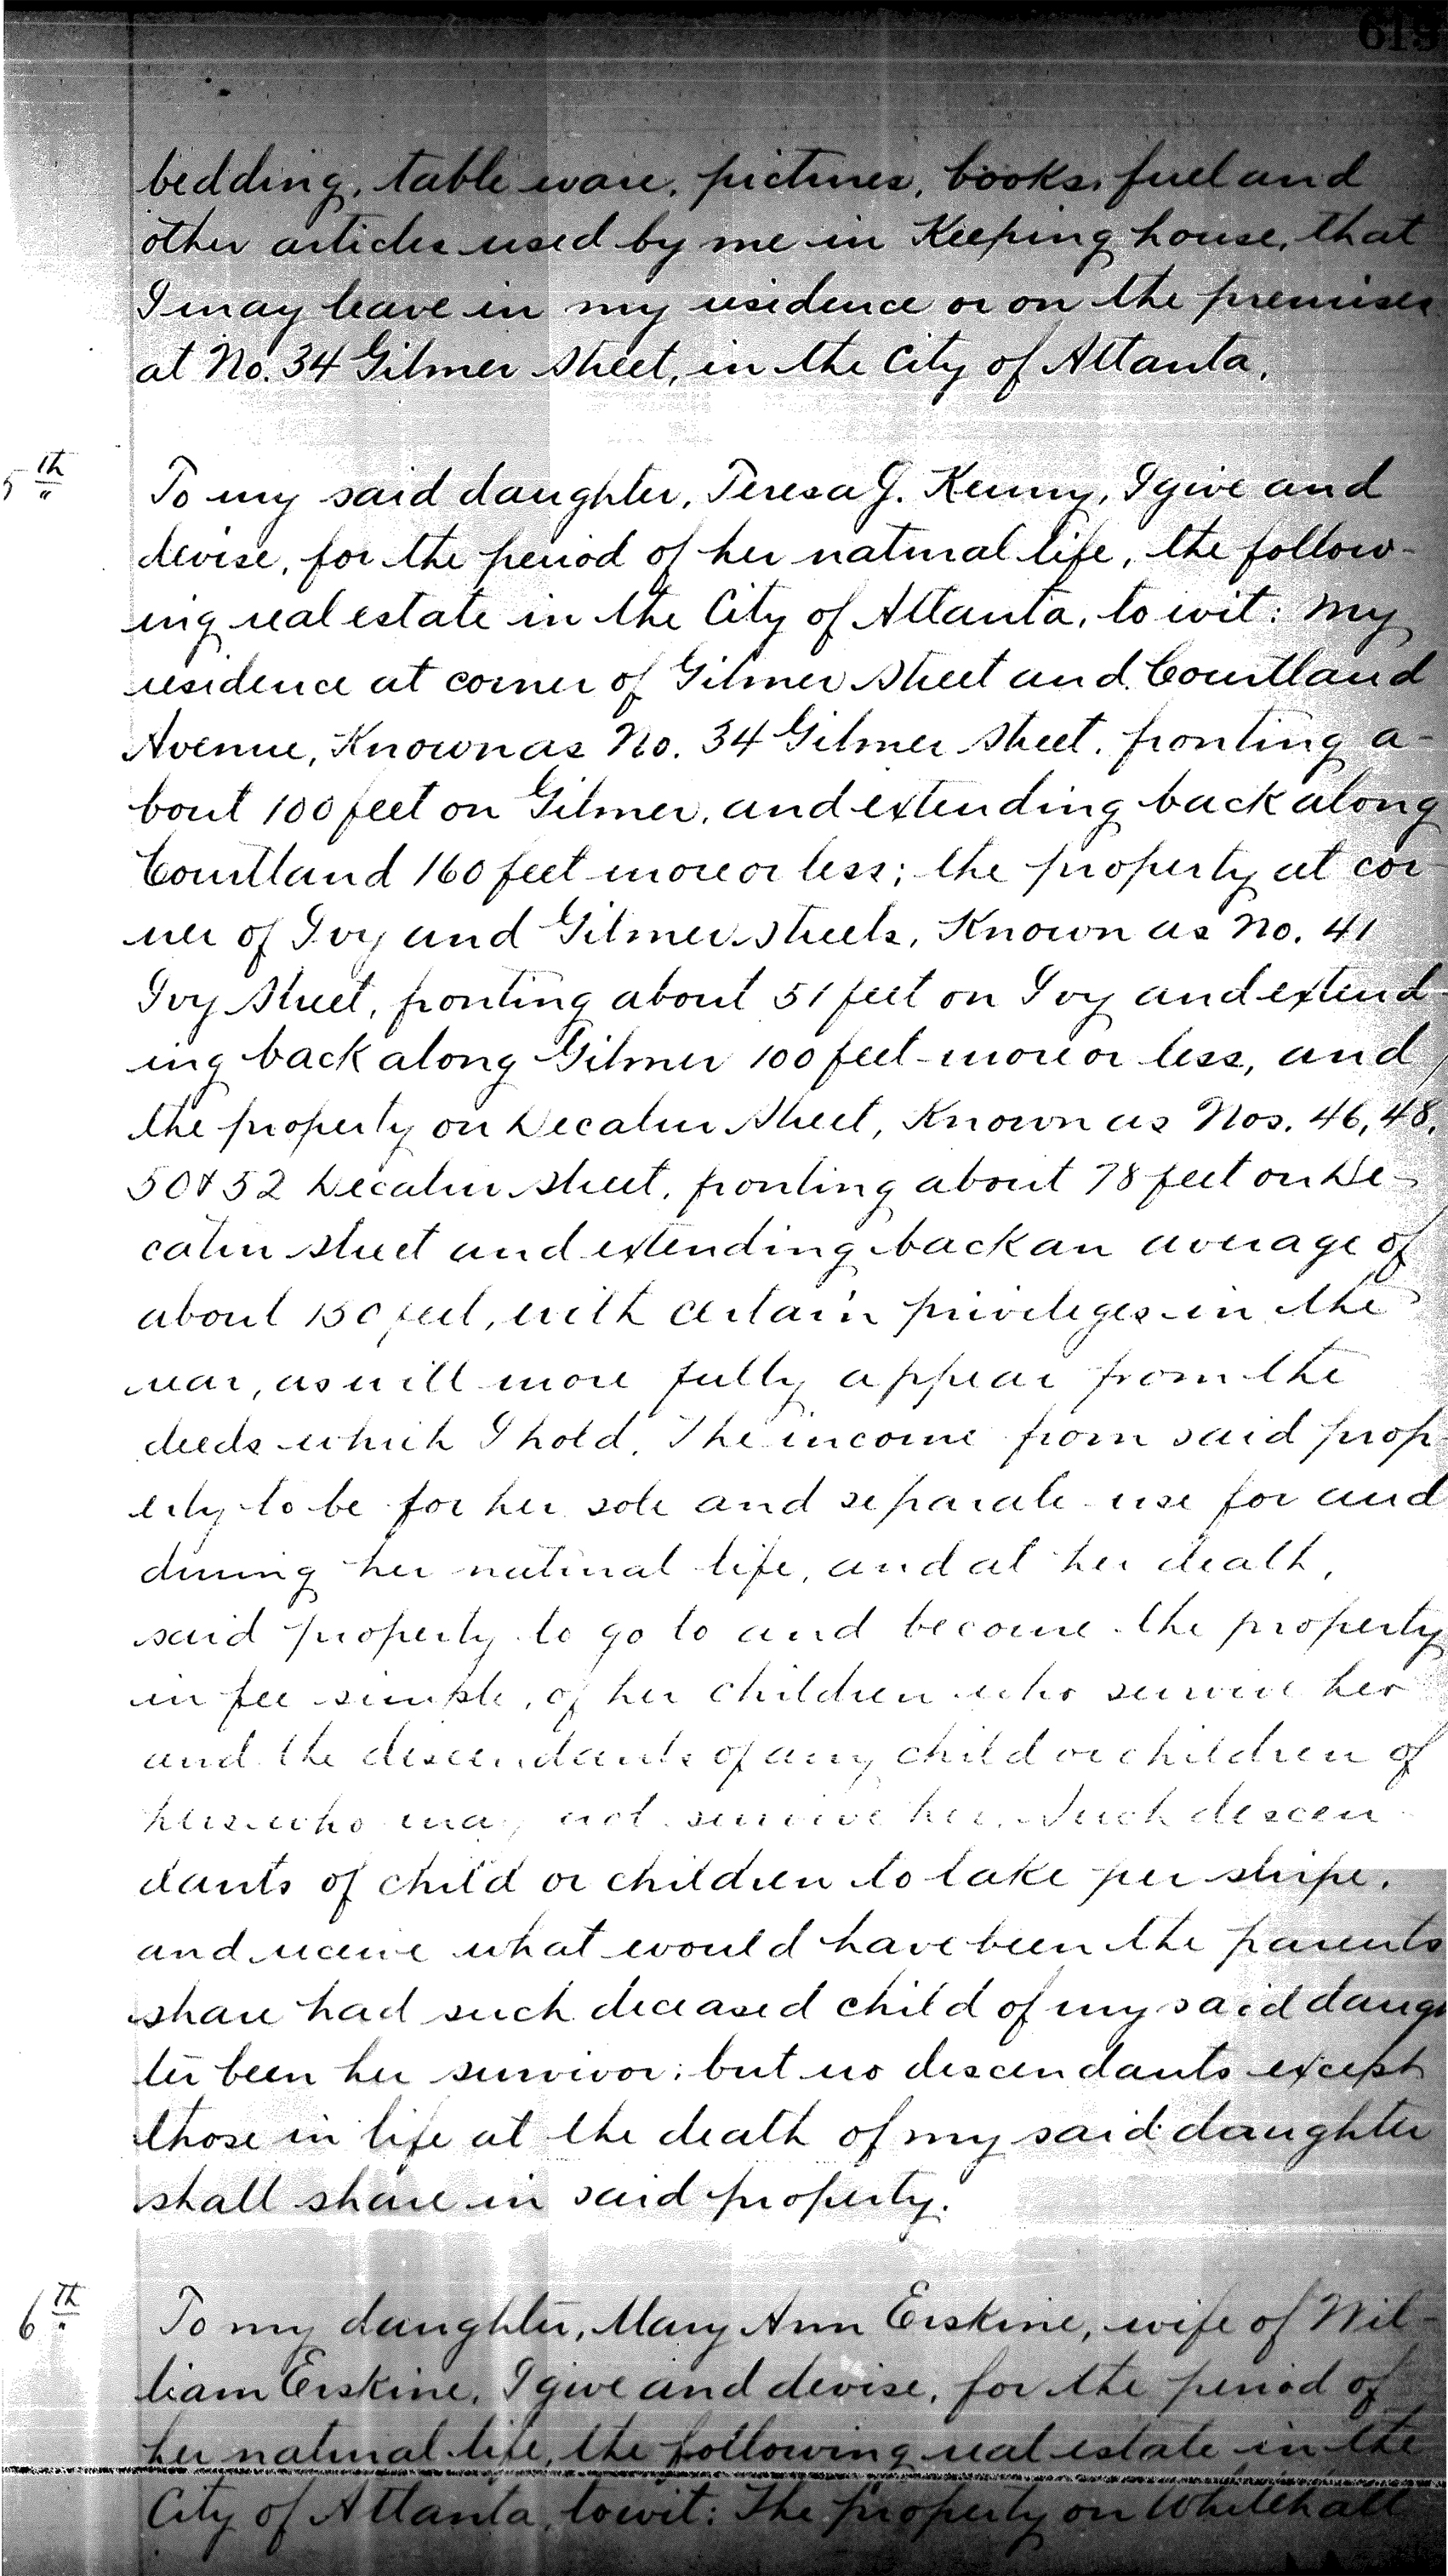 619
bedding, table ware, pictures, books, fuel and
other articles used by me in Keeping house, that
I may leave in my residence or on the premises
at No. 34 Gilmer Street, in the City of Atlanta.
5th To my said daughter, Teresa G. Kenny, I give and
devise, for the period of her natural life, the follow-
ing real estate in the City of Atlanta, to wit: My
residence at corner of Gilmer Street and Courtland
Avenue, Known as No. 34 Gilmer Street, fronting a-
bout 100 feet on Gilmer, and extending back along
Courtland 160 feet more or less; the property at cor
ner of Ivy and Gilmer Streets, Known as No. 41
Ivy Street, fronting about 51 feet on Ivy and extend-
ing back along Gilmer 100 feet more or less, and
the property on Decatur Street, Known as Nos. 46, 48,
50 & 52 Decatur Street, fronting about 78 feet on De-
catur Street and extending back an average of
about 150 feet, with certain privileges in the
rear, as will more fully appear from the
deeds which I hold. The income from said prop-
erty to be for her sole and separate use for and
during her natural life, and at her death,
said property to go to and become the property
in fee simple, of her children who survive her
and the descendants of any child or children of
hers who may not survive her. Such descen-
dants of child or children to take per stripe,
and receive what would have been the parents
share had such deceased child of my said daugh
ter been her survivor; but no descendants except
those in life at the death of my said daughter
shall share in said property.
6th To my daughter, Mary Ann Erskine, wife of Wil-
liam Erskine, I give and devise, for the period of
her natural life, the following real estate in the
City of Atlanta, towit: The property on Whitehall